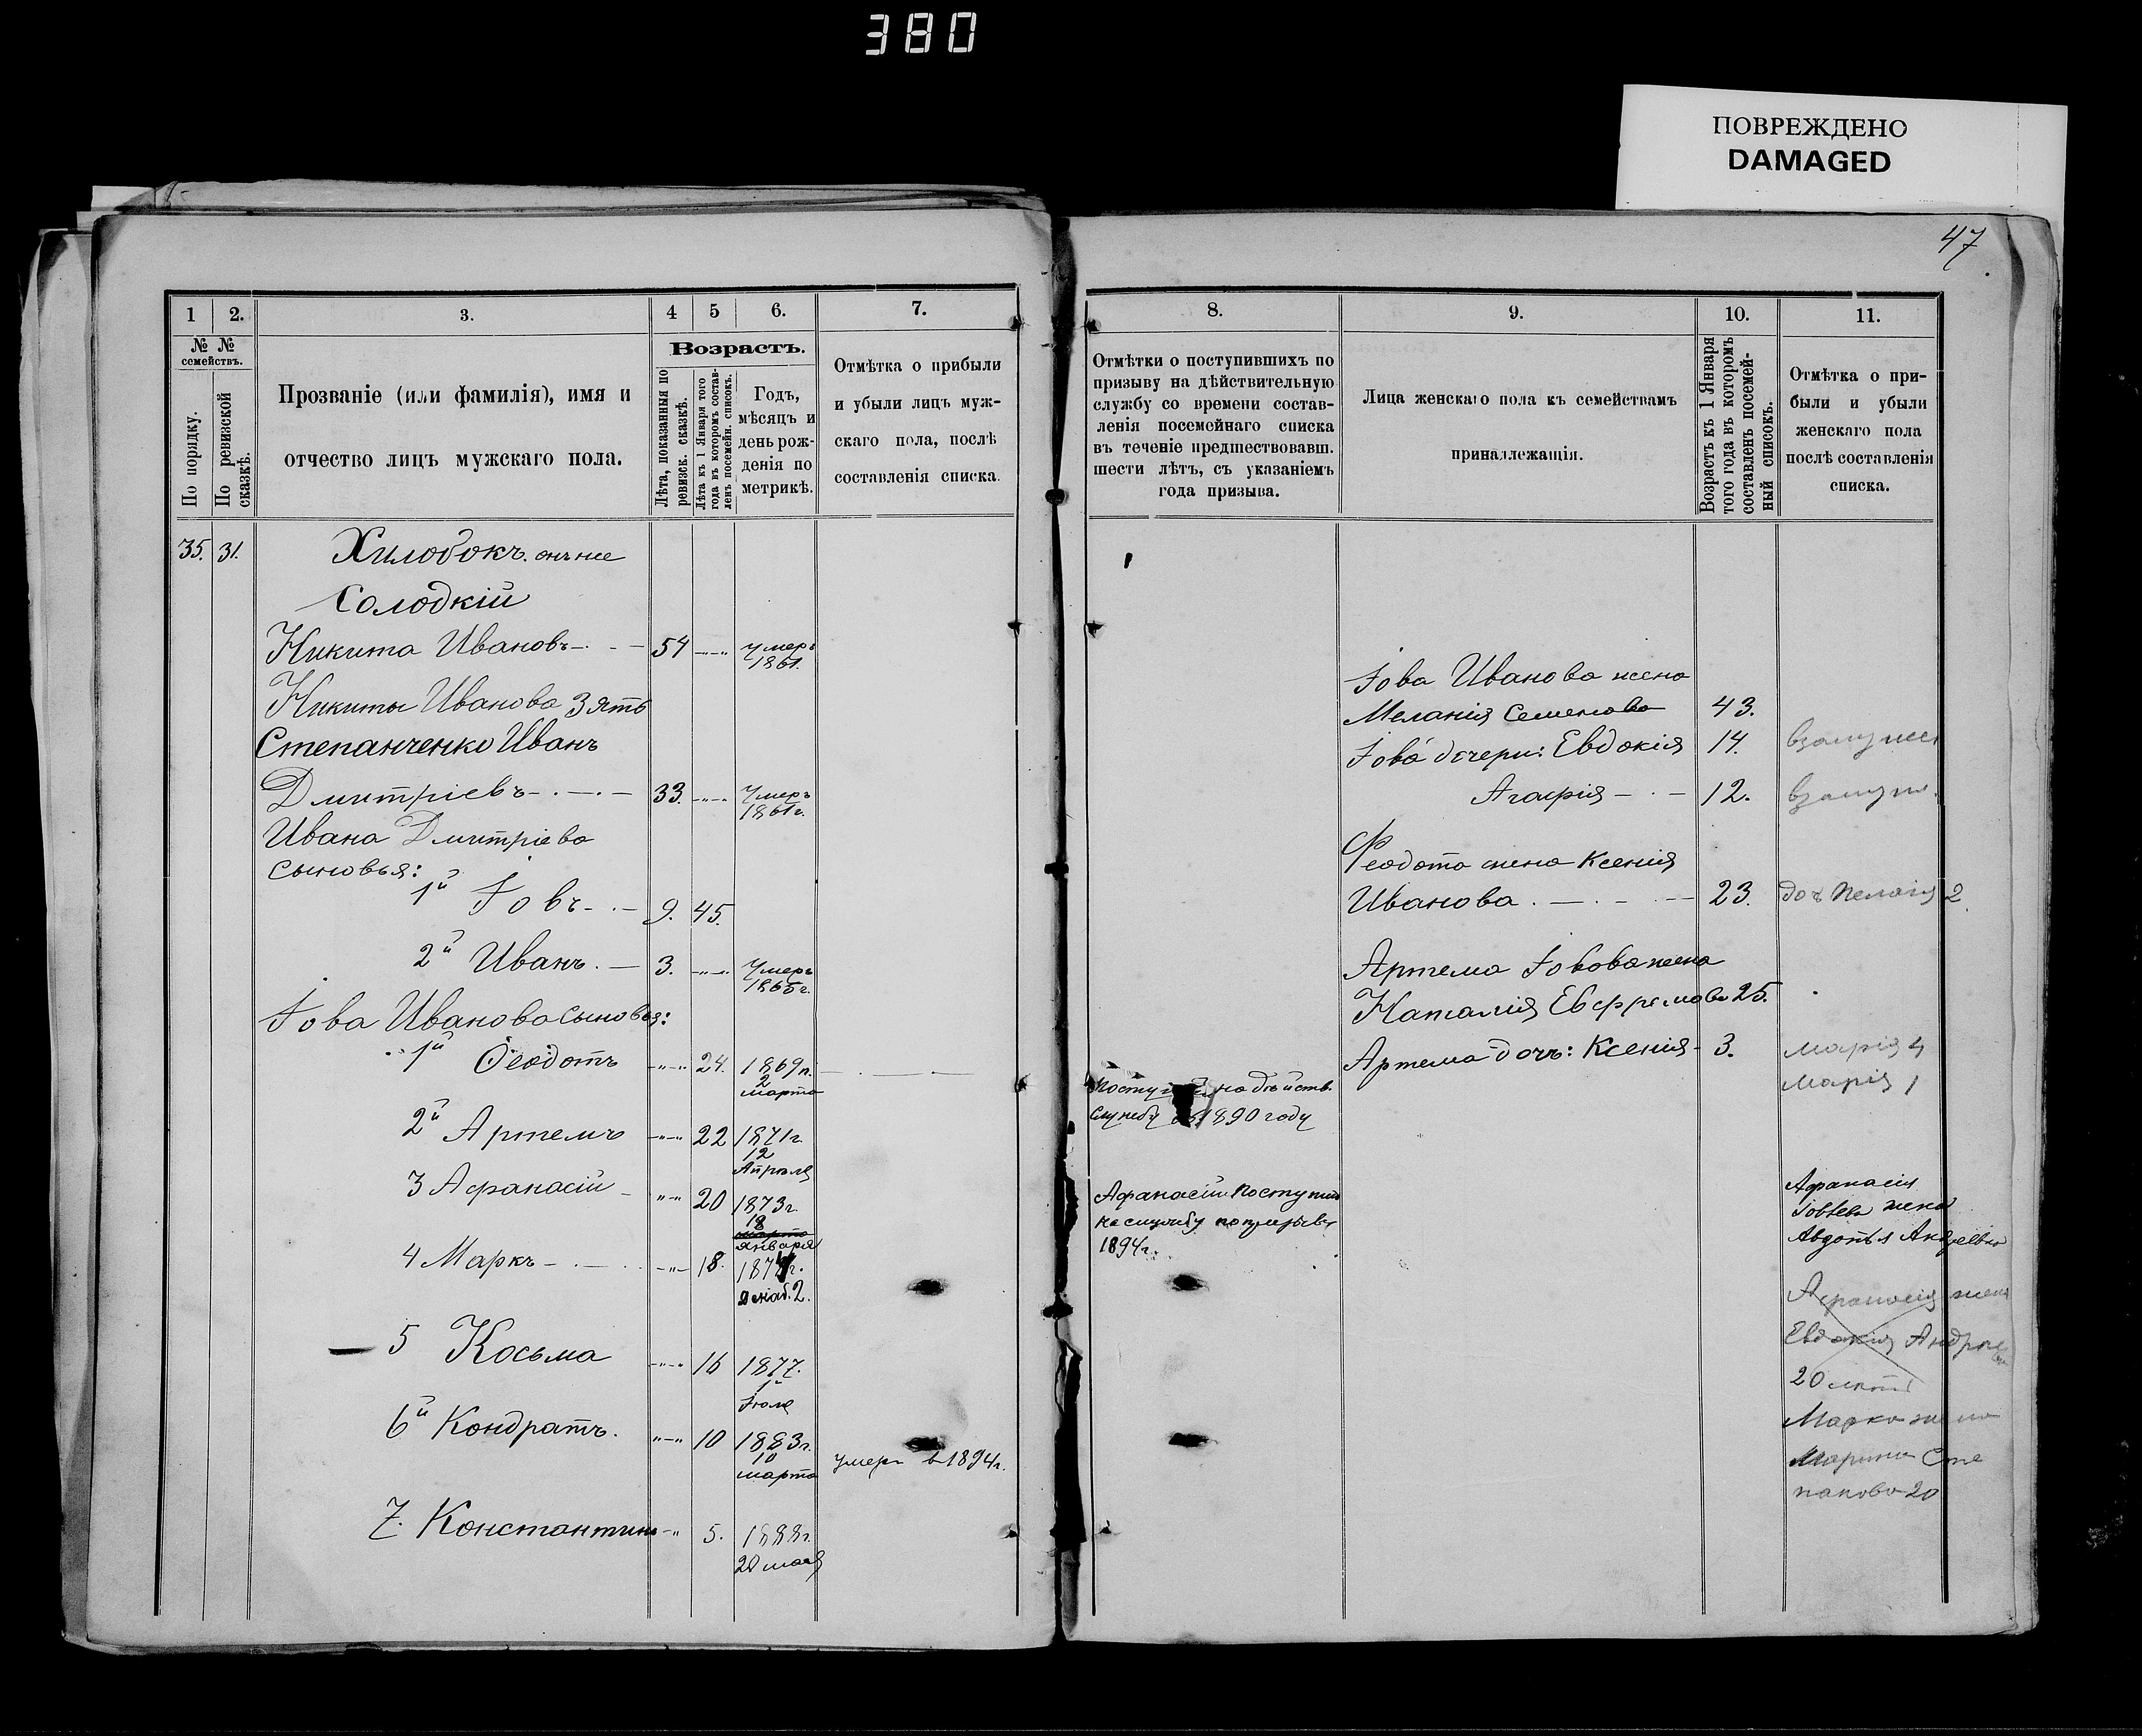 380
ПОВРЕЖДЕНО
DAMAGED
47
1
2.
3.
4
5
6.
7.
№ №
семействъ.
По порядку.
По ревизской
сказкѣ.
Прозваніе (или фамилія), имя и
отчество лицъ мужскаго пола.
Возрастъ.
Лѣта, показанныя по
ревизск. сказкѣ.
Лѣта къ 1 Января того
года въ которомъ состав-
ленъ посемейн. списокъ.
Годъ,
мѣсяцъ и
день рож-
денія по
метрикѣ.
Отмѣтка о прибыли
и убыли лицъ муж-
скаго пола, послѣ
составленія списка.
35. 31. Хилобокъ. онъ же
Солодкій
Никита Ивановъ 54 Умеръ
1861.
Никиты Иванова Зять
Степанченко Иванъ
Дмитріевъ 33. Умеръ
1861г.
Ивана Дмитріева
сыновья:
1й Іовъ 9. 45.
2й Иванъ. 3. Умеръ
1865г.
Іова Иванова сыновья:
1й Ѳеодотъ 24. 1869г.
2
марта
2й Артемъ 22 1871г.
12
Апрѣля
3 Афанасій 20 1873г.
18
марта
января
4 Маркъ 18. 1874г.
Декаб. 2.
5 Косьма 16 1877.
1й
Іюля
6й Кондратъ. 10 1883г.
10
марта
умеръ в 1894г.
7. Константинъ 5. 1888г.
20 мая
8.
9.
10.
11.
Отмѣтки о поступившихъ по
призыву на дѣйствительную
службу со времени состав-
ленія посемейнаго списка
въ теченіе предшествовавш.
шести лѣтъ, съ указаніемъ
года призыва.
Лица женскаго пола къ семействамъ
принадлежащія.
Возрастъ къ 1 Января
того года въ которомъ
составленъ посемей-
ный списокъ.
Отмѣтка о при-
были и убыли
женскаго пола
послѣ составленія
списка.
Іова Иванова жена
Меланія Семенова 43.
Іова дочери: Евдокія 14. взамуже
Агафія 12. взамуж.
Феодота жена Ксенія
Иванова 23. доч Пелагія 2.
Артема Іовова жена
Наталія Евфремова 25.
Артема дочь: Ксенія 3. Марія 4
Марія 1
на дѣйств.
службу 1890 году
Афанасій поступил
на службу по призыву
1894г.
Афанасія
Іовлева жена
Авдотья Андреевна
Афанасія жена
Евдокия Андрее
20 лѣтъ
Марка жена
Марина Сте
панова 20